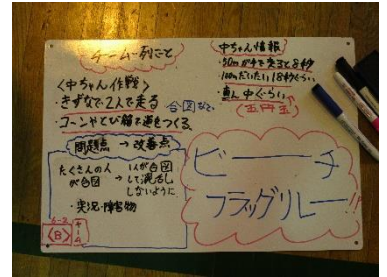 チーム一列ごと
〈中ちゃん作戦〉
・きずなで2人で走る
合図なで
・コーンやとび箱で道をつくる
問題点 → 改善点
たくさんの人が合図 →
1人が合図して混乱しないように
・実況・障害物
中ちゃん情報
・50mが手で8秒
・100mだいたい18秒ぐらい
中ぐらい
(五円玉)
ビーチ
フラッグリレー!!
6-2
〈B〉
チーム